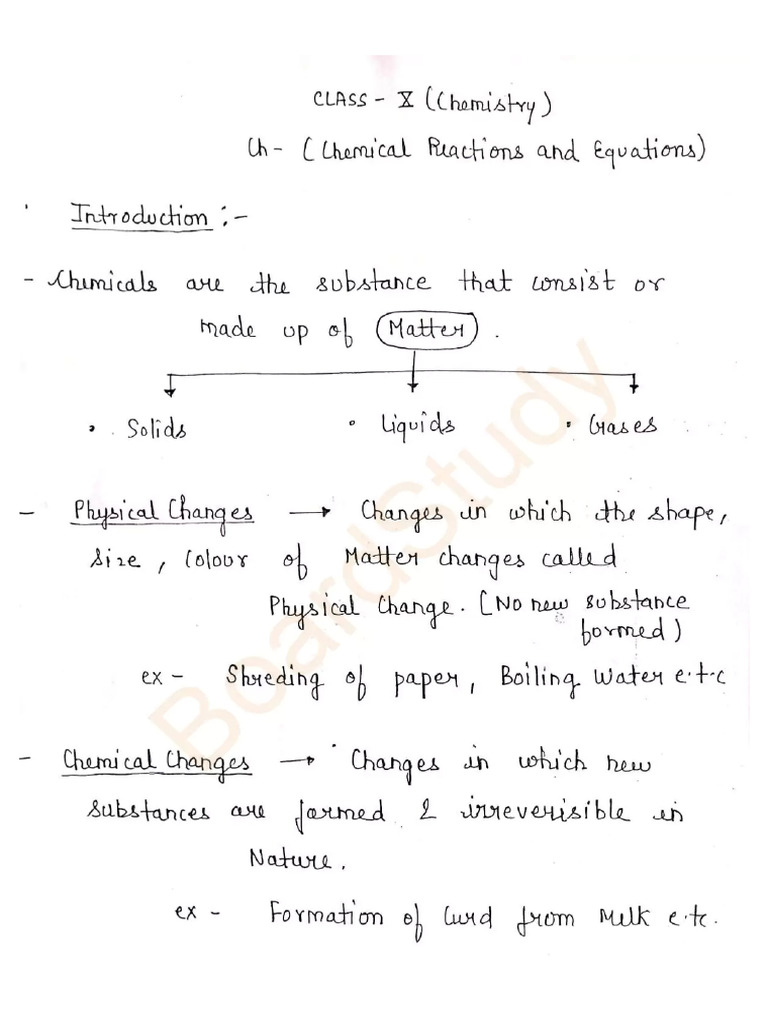 CLASS - X (Chemistry)
Ch- (Chemical Reactions and Equations)
Introduction :-
- Chemicals are the substance that consist or
made up of Matter.
• Solids • Liquids • Gases
- Physical Changes → Changes in which the shape,
size, Colour of Matter changes called
Physical Change. (No new substance
formed)
ex - Shreding of paper, Boiling Water e.t.c
- Chemical Changes → Changes in which new
substances are formed & irreverisible in
Nature.
ex - Formation of Curd from Melk e.tc.
BoardStudy